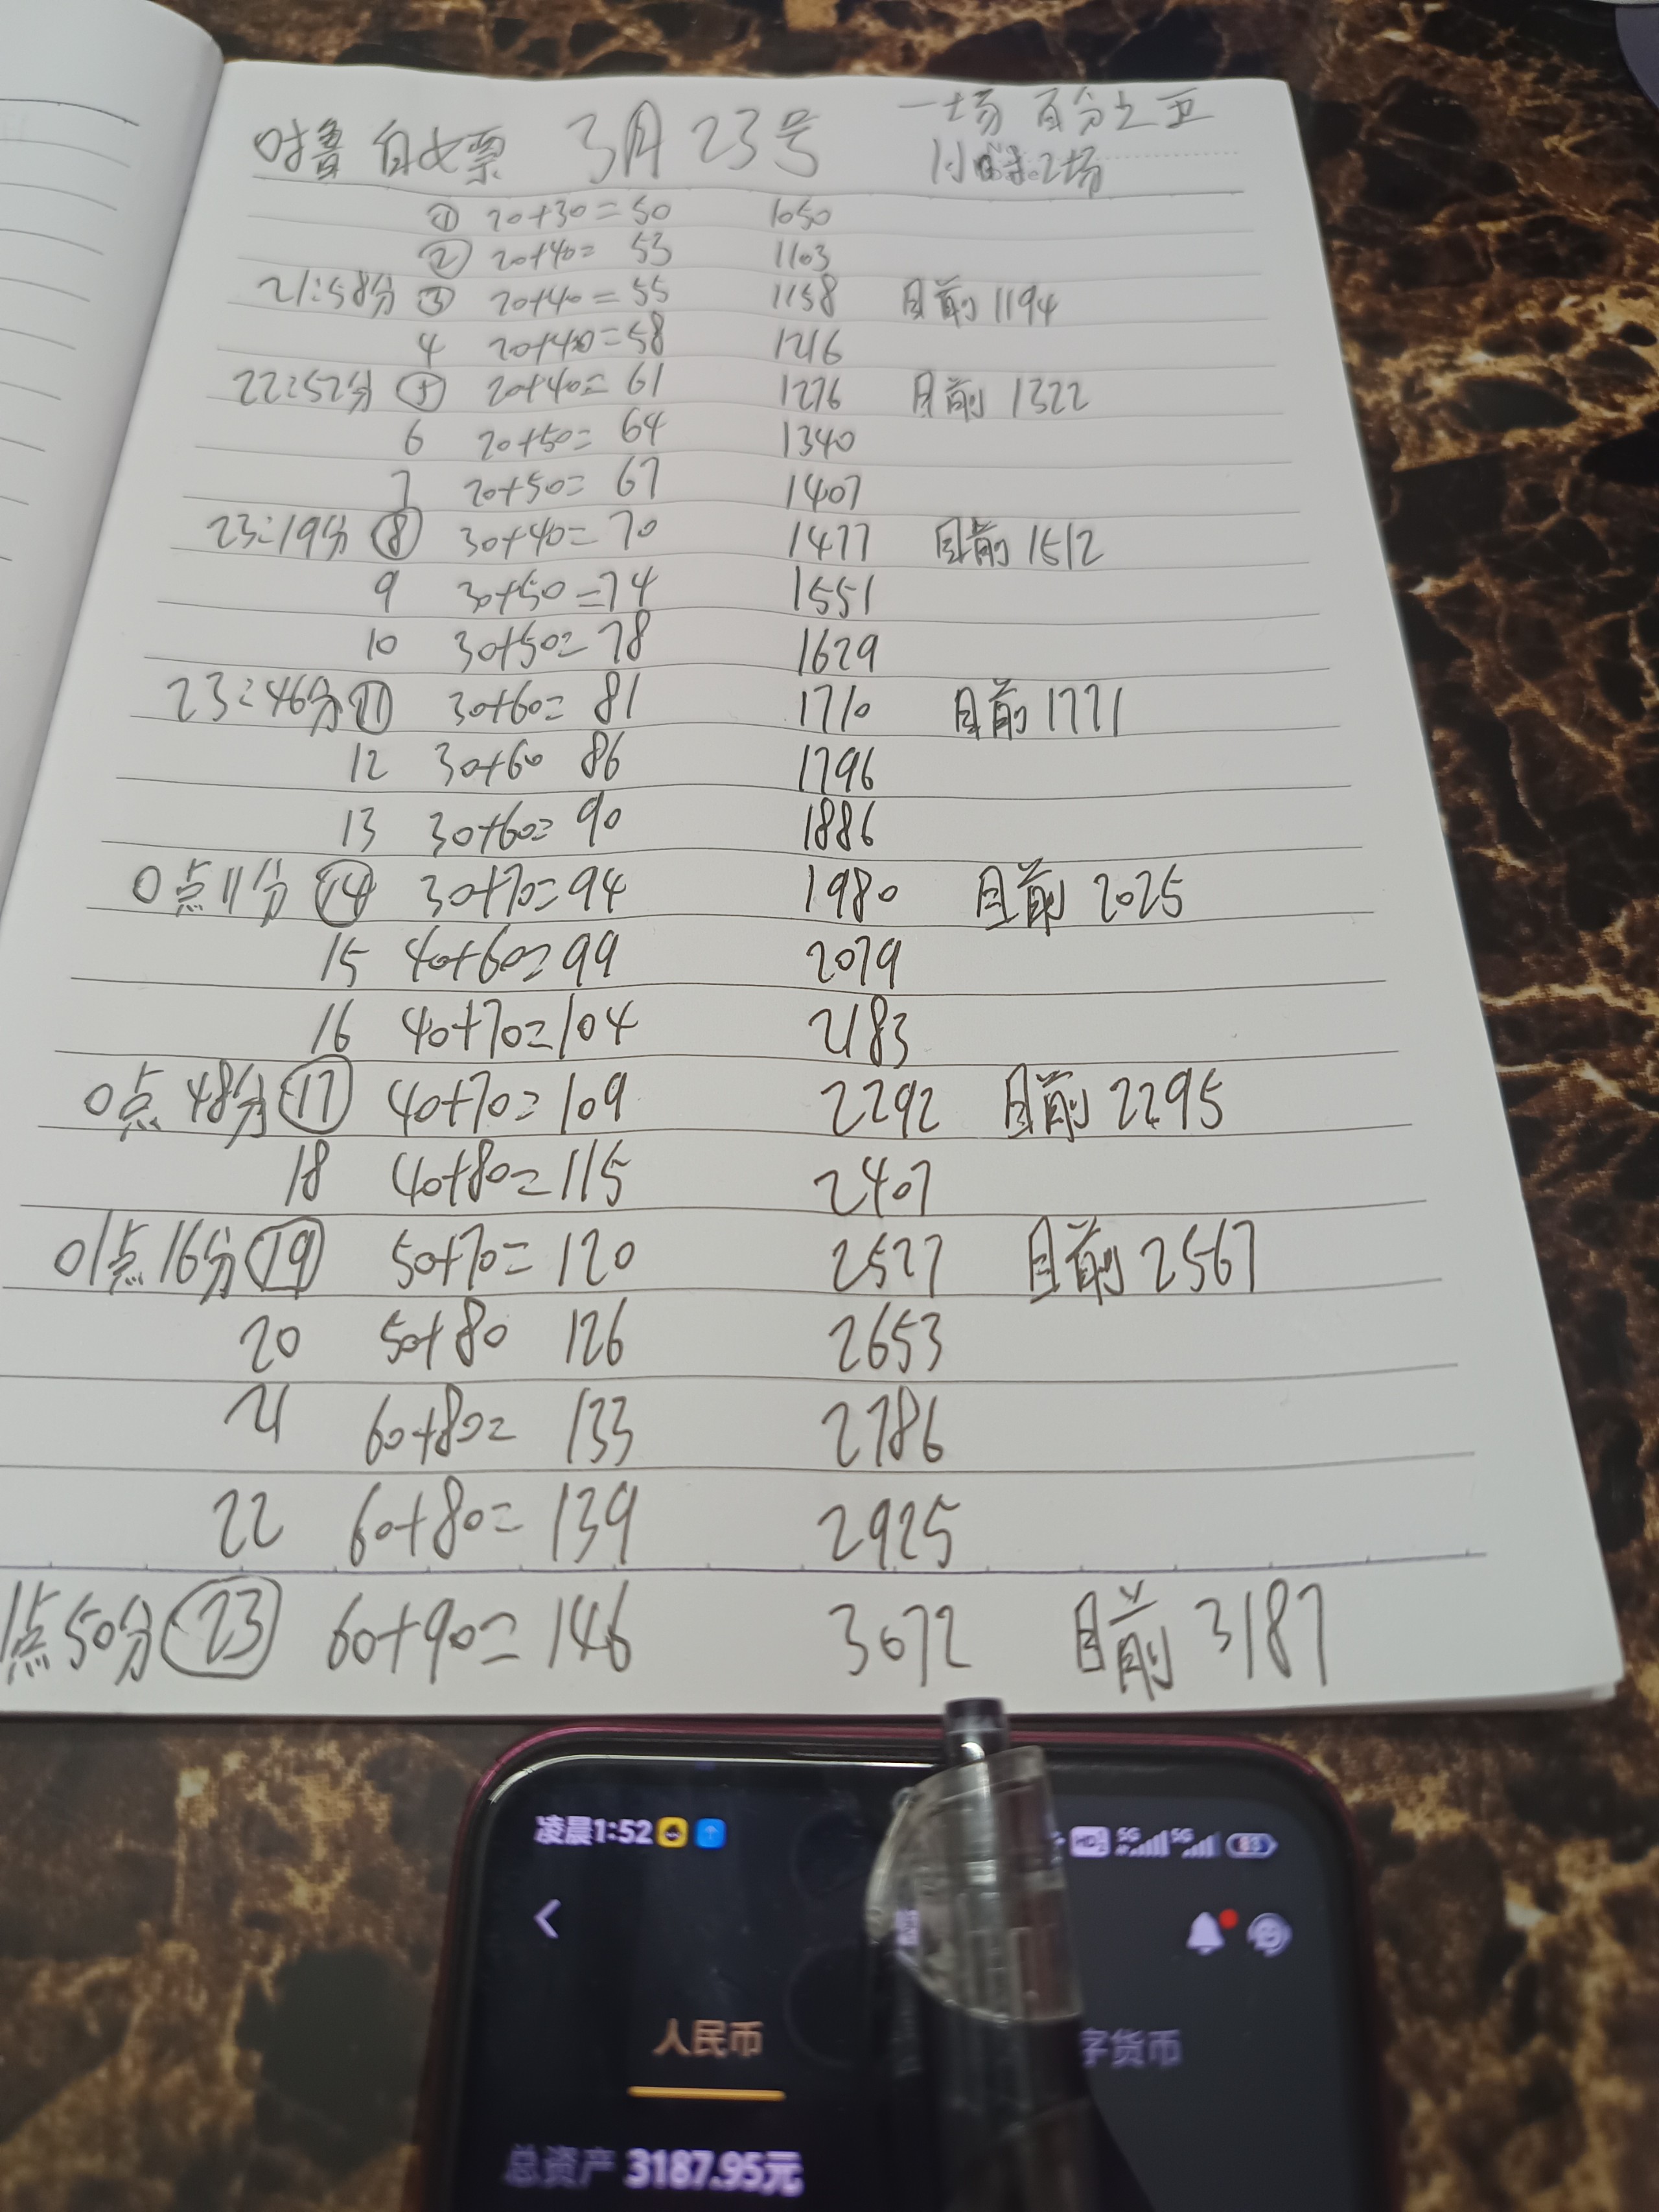 3月23号 一场 百分之五
1小时2场
① 20+30=50 1050
② 20+40= 53 1103
21:58分 ③ 20+40=55 1158 目前1194
4 20+40=58 1216
22:52分 ⑤ 20+40= 61 1276 目前 1322
6 20+50= 64 1340
7 20+50= 67 1407
23:19分 ⑧ 30+40= 70 1477 目前1512
9 30+50=74 1551
10 30+50= 78 1629
23:46分 ⑪ 30+60= 81 1710 目前1771
12 30+60 86 1796
13 30+60= 90 1886
0点11分 ⑭ 30+70=94 1980 目前 2025
15 40+60=99 2079
16 40+70=104 2183
0点48分 ⑰ 40+70=109 2292 目前 2295
18 40+80=115 2407
01点16分 ⑲ 50+70=120 2527 目前 2567
20 50+80 126 2653
21 60+80= 133 2786
22 60+80= 139 2925
1点50分 ㉓ 60+90= 146 3072 目前 3187
凌晨1:52 HD 5G 5G 83
人民币 字货币
总资产 3187.95元